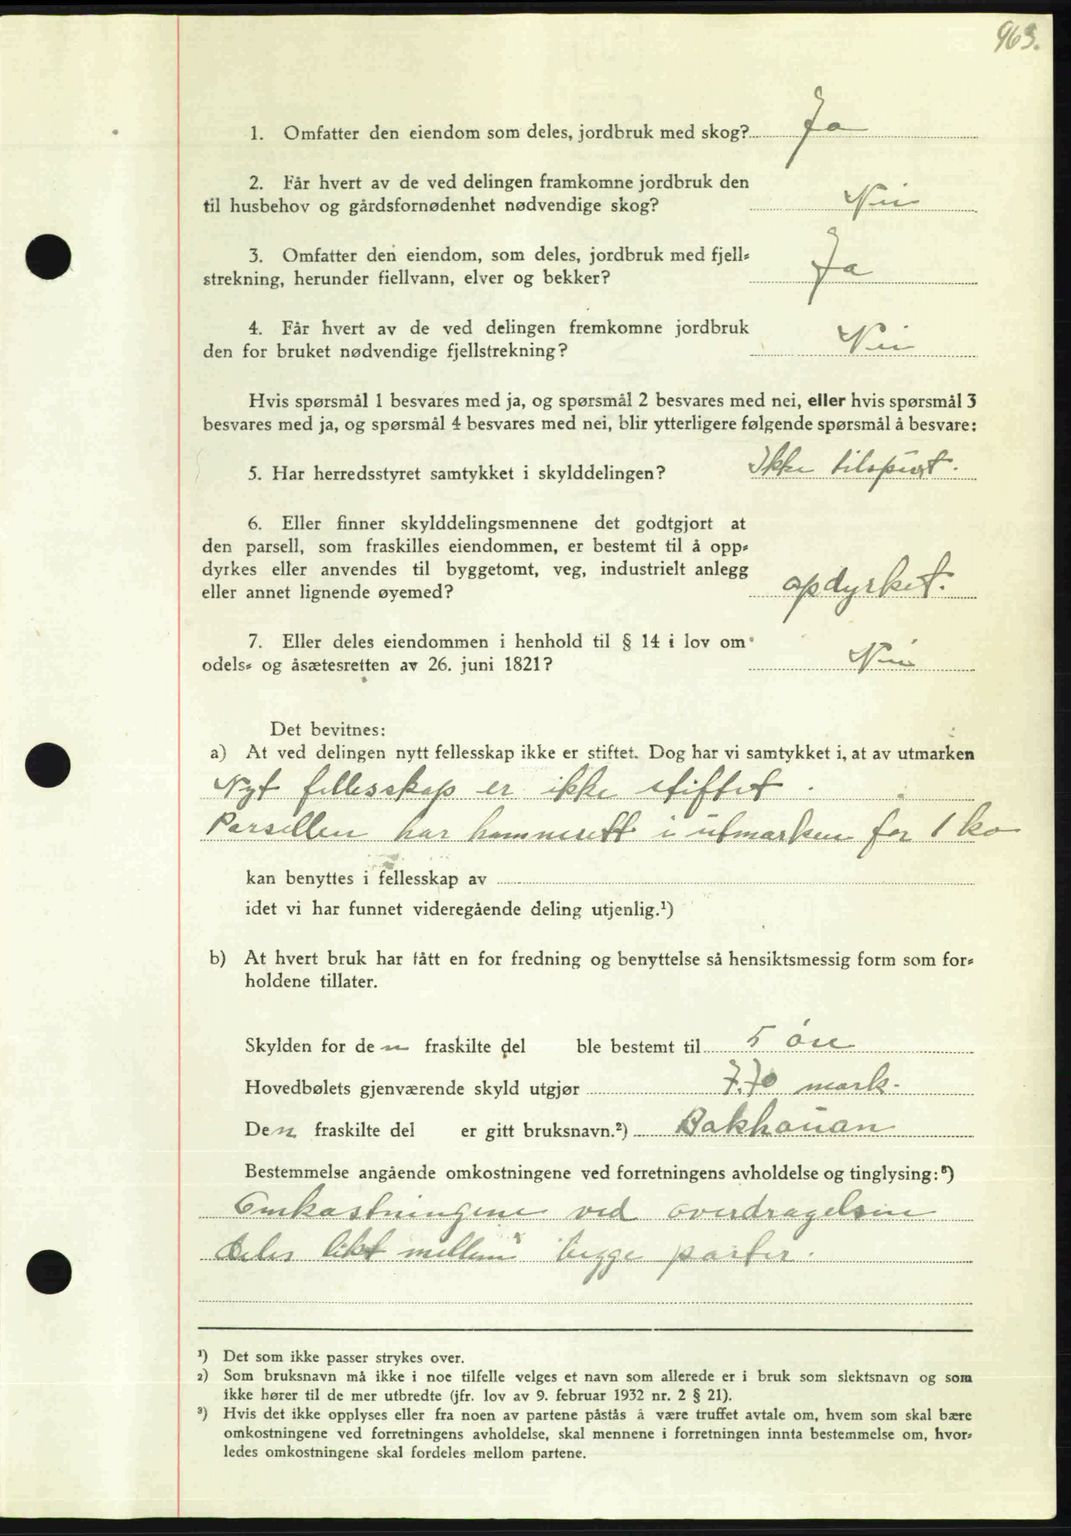 963.
1. Omfatter den eiendom som deles, jordbruk med skog? Ja
2. Får hvert av de ved delingen framkomne jordbruk den
til husbehov og gårdsfornødenhet nødvendige skog? Nei
3. Omfatter den eiendom, som deles, jordbruk med fjell-
strekning, herunder fiellvann, elver og bekker? Ja
4. Får hvert av de ved delingen fremkomne jordbruk
den for bruket nødvendige fjellstrekning? Nei
Hvis spørsmål 1 besvares med ja, og spørsmål 2 besvares med nei, eller hvis spørsmål 3
besvares med ja, og spørsmål 4 besvares med nei, blir ytterligere følgende spørsmål å besvare:
5. Har herredsstyret samtykket i skylddelingen? Ikke tilspurt.
6. Eller finner skylddelingsmennene det godtgjort at
den parsell, som fraskilles eiendommen, er bestemt til å opp-
dyrkes eller anvendes til byggetomt, veg, industrielt anlegg
eller annet lignende øyemed? opdyrket.
7. Eller deles eiendommen i henhold til § 14 i lov om
odels- og åsætesretten av 26. juni 1821? Nei
Det bevitnes:
a) At ved delingen nytt fellesskap ikke er stiftet. Dog har vi samtykket i, at av utmarken
Nyt fellesskap er ikke stiftet.
Parsellen har hamnerett i utmarken for 1 ko
kan benyttes i fellesskap av
idet vi har funnet videregående deling utjenlig.¹)
b) At hvert bruk har fått en for fredning og benyttelse så hensiktsmessig form som for-
holdene tillater.
Skylden for den fraskilte del ble bestemt til 5 øre
Hovedbølets gjenværende skyld utgjør 7.70 mark.
Den fraskilte del er gitt bruksnavn.²) Bakhauan
Bestemmelse angående omkostningene ved forretningens avholdelse og tinglysing:³)
Omkostningene ved overdragelsen
deles likt mellem begge parter.
¹) Det som ikke passer strykes over.
²) Som bruksnavn må ikke i noe tilfelle velges et navn som allerede er i bruk som slektsnavn og som
ikke hører til de mer utbredte (jfr. lov av 9. februar 1932 nr. 2 § 21).
³) Hvis det ikke opplyses eller fra noen av partene påstås å være truffet avtale om, hvem som skal bære
omkostningene ved forretningens avholdelse, skal mennene i forretningen innta bestemmelse om, hvor-
ledes omkostningene skal fordeles mellom partene.